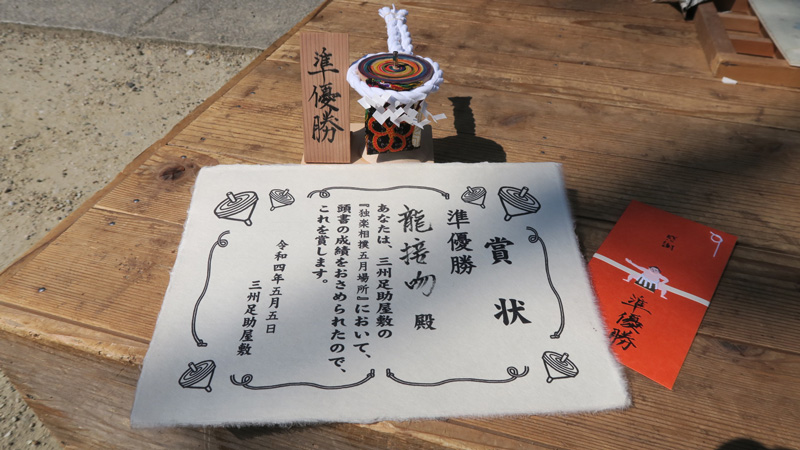 準優勝
賞状
準優勝
龍接吻 殿
あなたは、三州足助屋敷の
『独楽相撲五月場所』において、
頭書の成績をおさめられたので、
これを賞します。
令和四年五月五日
三州足助屋敷
準優勝